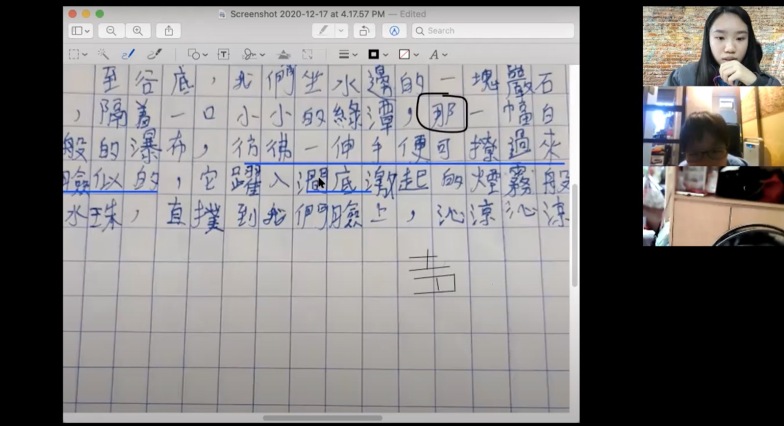 Screenshot 2020-12-17 at 4.17.57 PM — Edited
Search
至谷底，我們坐水邊的一塊巖石
，隔着一口小小的綠潭，那一幅白
般的瀑布，彷彿一伸手便可撩過來
似的，它躍入澗底激起的煙霧般
水珠，直撲到我們臉上，沁涼沁涼